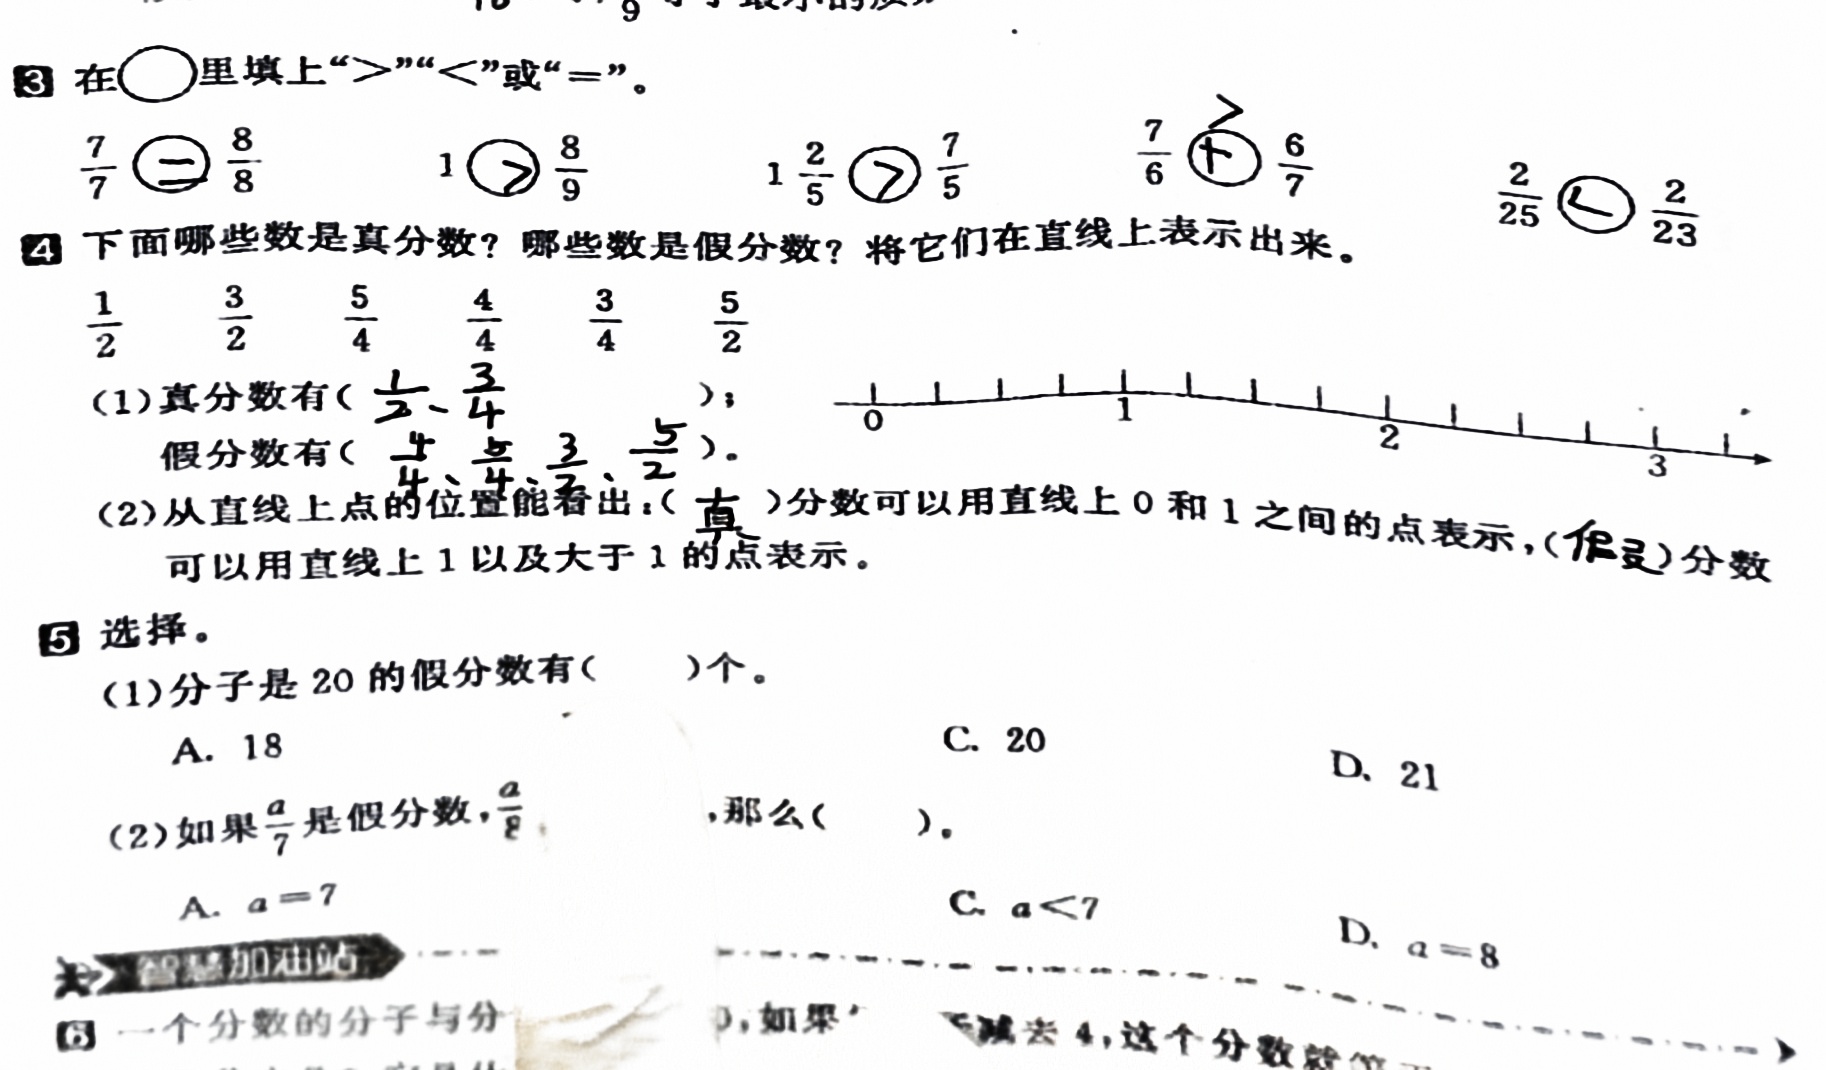 3 在○里填上“>”“<”或“=”。
7/7 = 8/8 1 > 8/9 1 2/5 > 7/5 7/6 > 6/7 2/25 < 2/23
4 下面哪些数是真分数？哪些数是假分数？将它们在直线上表示出来。
1/2 3/2 5/4 4/4 3/4 5/2
(1)真分数有( 1/2、3/4 )；
假分数有( 4/4、5/4、3/2、5/2 )。
0 1 2 3
(2)从直线上点的位置能看出：( 真 )分数可以用直线上 0 和 1 之间的点表示，(假)分数
可以用直线上 1 以及大于 1 的点表示。
5 选择。
(1)分子是 20 的假分数有( )个。
A. 18 C. 20 D. 21
(2)如果 a/7 是假分数，a/8 ，那么( )。
A. a=7 C. a<7 D. a=8
智慧加油站
6 一个分数的分子与分 ，如果 减去 4，这个分数就